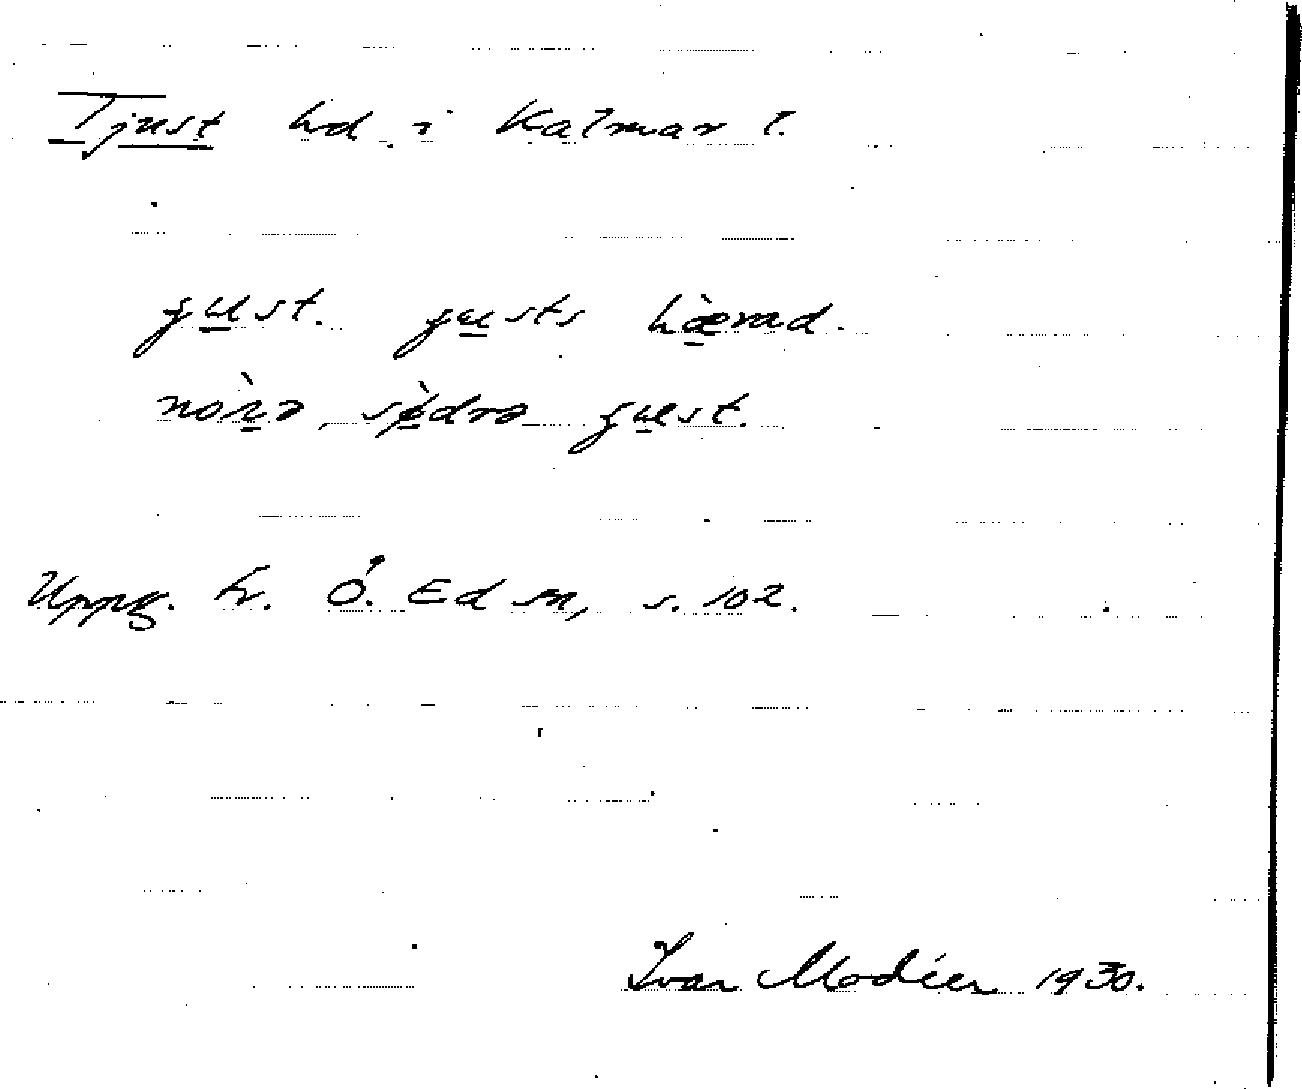 Tjust hd i Kalmar l.
ʃu̲st. ʃu̲sts hæ̲̀rad.
nòr̲ə, sø̲̀drə ʃu̲st.
Uppg. fr. Ö. Ed sn, s. 102.
Ivar Modéer 1930.